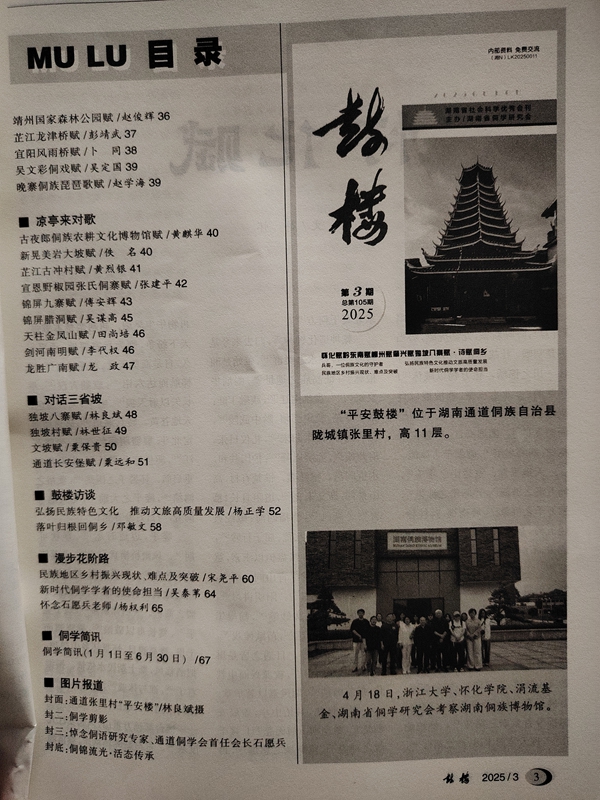 MU LU 目 录
靖州国家森林公园赋 /赵俊辉 36
芷江龙津桥赋 /彭靖武 37
宜阳风雨桥赋 /卜 同 38
吴文彩侗戏赋 /吴定国 39
晚寨侗族琵琶歌赋 /赵学海 39
■ 凉亭来对歌
古夜郎侗族农耕文化博物馆赋 /黄麒华 40
新晃美岩大坡赋 /佚 名 40
芷江古冲村赋 /黄烈银 41
宣恩野椒园张氏侗寨赋 /张建平 42
锦屏九寨赋 /傅安辉 43
锦屏腊洞赋 /吴谋高 45
天柱金凤山赋 /田尚培 46
剑河南明赋 /李代权 46
龙胜广南赋 /龙 政 47
■ 对话三省坡
独坡八寨赋 /林良斌 48
独坡村赋 /林世征 49
文坡赋 /粟保贵 50
通道长安堡赋 /粟远和 51
■ 鼓楼访谈
弘扬民族特色文化 推动文旅高质量发展 /杨正学 52
落叶归根回侗乡 /邓敏文 58
■ 漫步花阶路
民族地区乡村振兴现状、难点及突破 /宋尧平 60
新时代侗学学者的使命担当 /吴泰菁 64
怀念石愿兵老师 /杨权利 65
■ 侗学简讯
侗学简讯(1 月 1日至 6 月 30 日) /67
■ 图片报道
封面:通道张里村"平安楼"/林良斌摄
封二:侗学剪影
封三:悼念侗语研究专家、通道侗学会首任会长石愿兵
封底:侗锦流光·活态传承
内部资料 免费交流
(湘N) LK20250011
湖南省社会科学优秀会刊
主办/湖南省侗学研究会
鼓
楼
第 3 期
总第105期
2025
兵哥,一位侗族文化的守护者 弘扬民族特色文化推动文旅高质量发展
民族地区乡村振兴现状、难点及突破 新时代侗学学者的使命担当
"平安鼓楼"位于湖南通道侗族自治县
陇城镇张里村,高 11 层。
湖南侗族博物馆
4 月 18 日,浙江大学、怀化学院、涓流基
金、湖南省侗学研究会考察湖南侗族博物馆。
鼓楼 2025/3 3